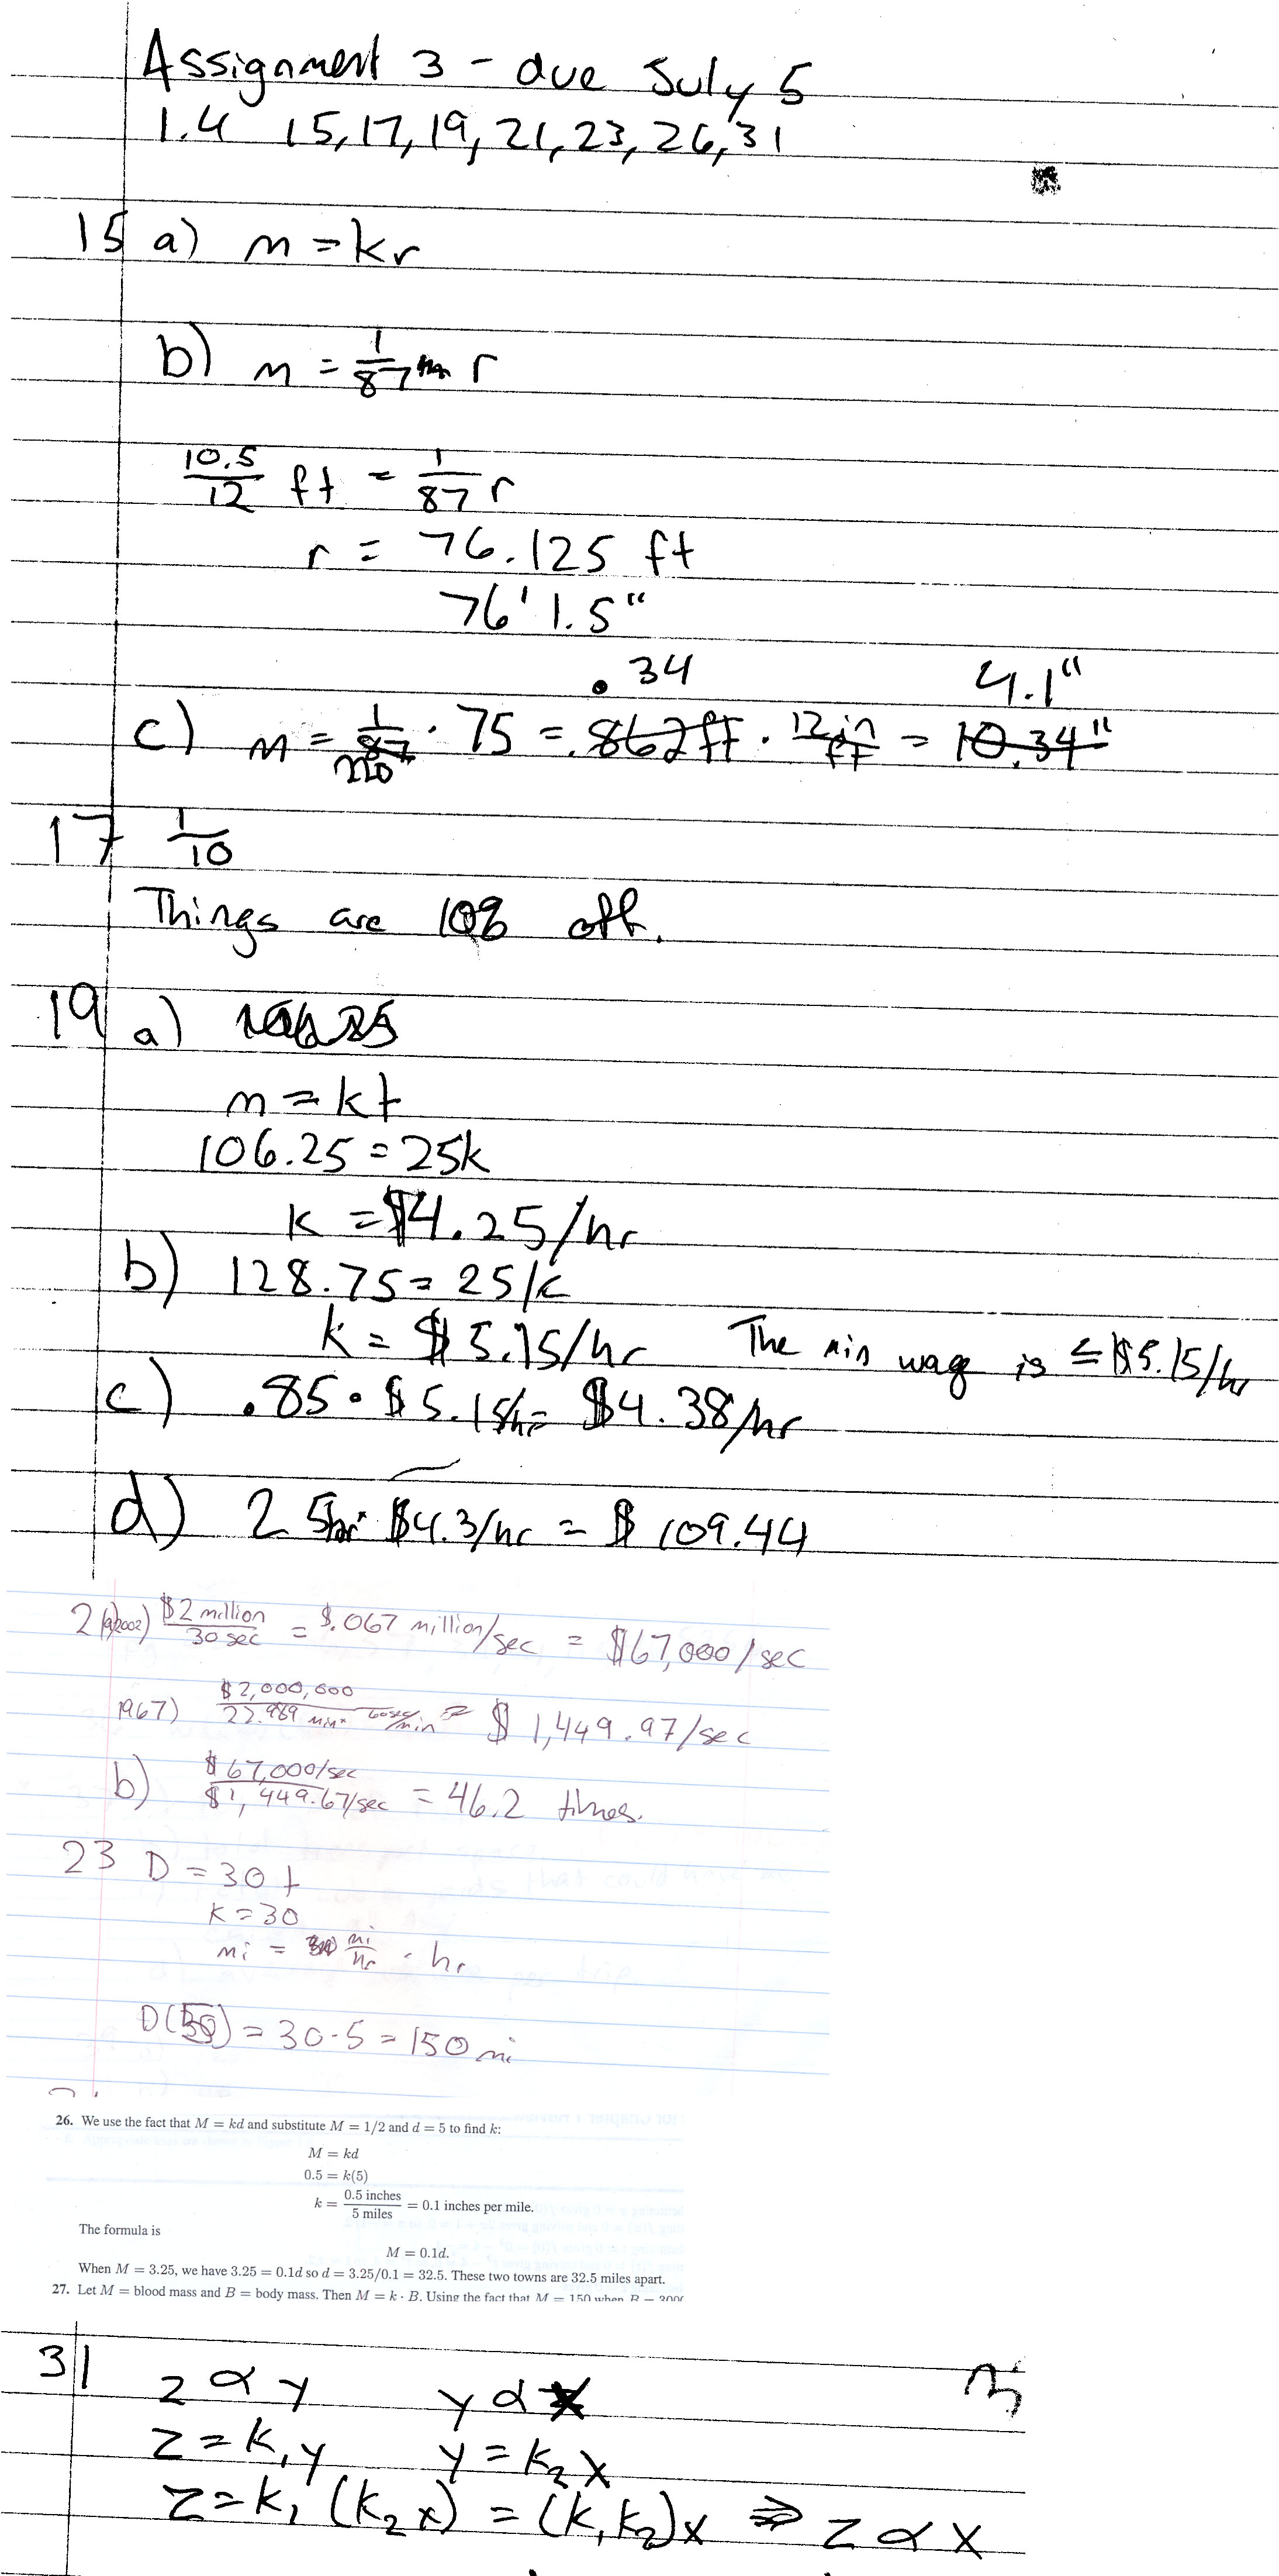 Assignment 3 - due July 5
1.4 15, 17, 19, 21, 23, 26, 31
15 a) m = kr
b) m = 1/87 r
10.5/12 ft = 1/87 r
r = 76.125 ft
76' 1.5"
.34 4.1"
c) m = 1/220 · 75 = .862 ft · 12 in/ft = 10.34"
17 1/10
Things are 10% off.
19 a)
m = kt
106.25 = 25k
k = $4.25/hr
b) 128.75 = 25k
k = $5.15/hr The min wage is ≤ $5.15/hr
c) .85 · $5.15/hr = $4.38/hr
d) 25hr · $4.3/hr = $109.44
21 a) 2002) $2 million/30 sec = $.067 million/sec = $67,000/sec
1967) $2,000,000/22.989 min · 60sec/min = $1,449.97/sec
b) $67,000/sec / $1,449.67/sec = 46.2 times.
23 D = 30t
k = 30
mi = mi/hr · hr
D(5) = 30·5 = 150 mi
26. We use the fact that M = kd and substitute M = 1/2 and d = 5 to find k:
M = kd
0.5 = k(5)
k = 0.5 inches/5 miles = 0.1 inches per mile.
The formula is
M = 0.1d.
When M = 3.25, we have 3.25 = 0.1d so d = 3.25/0.1 = 32.5. These two towns are 32.5 miles apart.
27. Let M = blood mass and B = body mass. Then M = k · B. Using the fact that M = 150 when B = 3000
31 z ∝ y y ∝ x
z = k₁y y = k₂x
z = k₁(k₂x) = (k₁k₂)x ⇒ z ∝ x